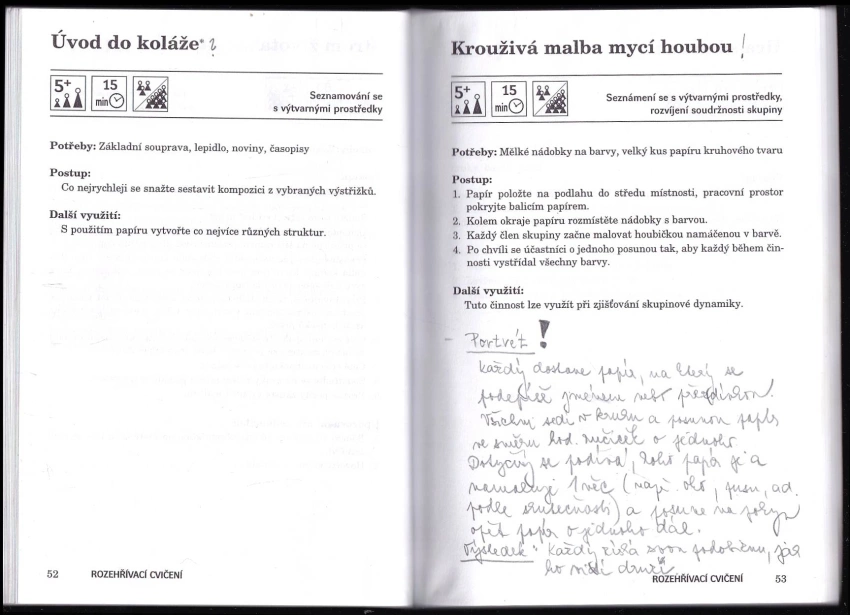 Úvod do koláže* ?
5+
15
min
Seznamování se
s výtvarnými prostředky
Potřeby: Základní souprava, lepidlo, noviny, časopisy
Postup:
Co nejrychleji se snažte sestavit kompozici z vybraných výstřižků.
Další využití:
S použitím papíru vytvořte co nejvíce různých struktur.
52 ROZEHŘÍVACÍ CVIČENÍ
Krouživá malba mycí houbou !
5+
15
min
Seznámení se s výtvarnými prostředky,
rozvíjení soudržnosti skupiny
Potřeby: Mělké nádobky na barvy, velký kus papíru kruhového tvaru
Postup:
1. Papír položte na podlahu do středu místnosti, pracovní prostor
pokryjte balicím papírem.
2. Kolem okraje papíru rozmístěte nádobky s barvou.
3. Každý člen skupiny začne malovat houbičkou namáčenou v barvě.
4. Po chvíli se účastníci o jednoho posunou tak, aby každý během čin-
nosti vystřídal všechny barvy.
Další využití:
Tuto činnost lze využít při zjišťování skupinové dynamiky.
- Portrét !
každý dostane papír, na který se
podepíše jménem nebo přezdívkou.
Všichni sedí v kruhu a posunou papír
ve směru hod. ručiček o jednoho.
Dotyčný se podívá, koho papír je a
namaluje 1 věc (např. oko, pusu, ad.
podle skutečnosti) a posune na pokyn
opět papír o jednoho dál.
Výsledek: každý získá svou podobiznu, jak
ho vidí druzí
ROZEHŘÍVACÍ CVIČENÍ 53